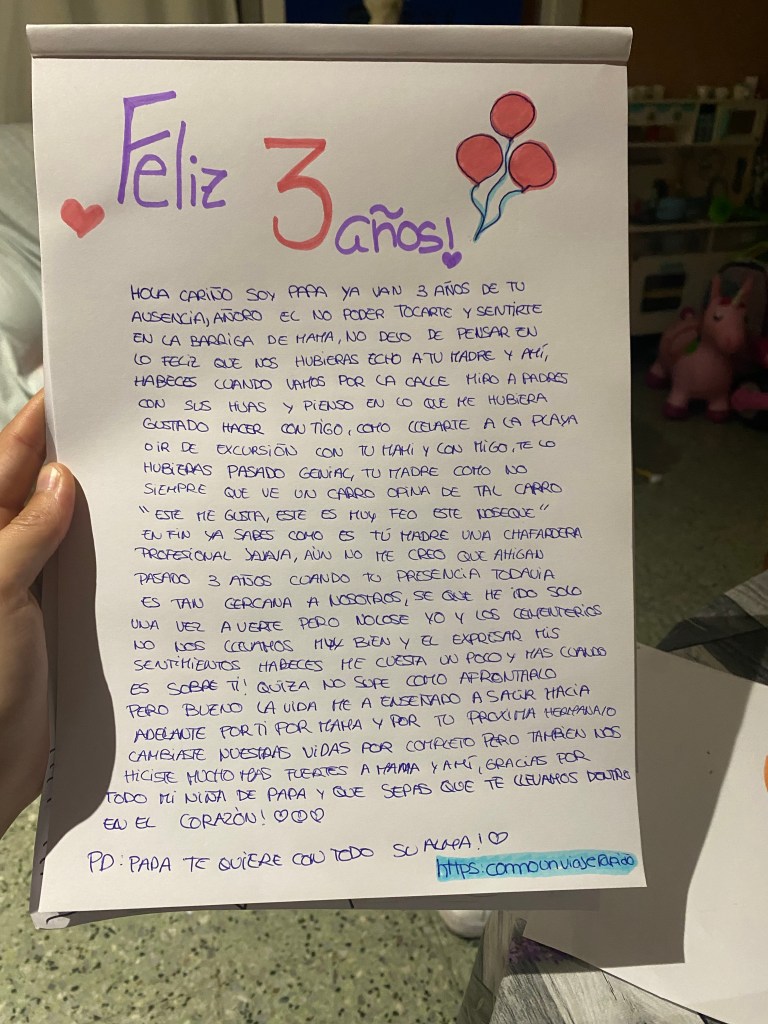 Feliz 3 años!
HOLA CARIÑO SOY PAPA YA VAN 3 AÑOS DE TU
AUSENCIA, AÑORO EL NO PODER TOCARTE Y SENTIRTE
EN LA BARRIGA DE MAMA, NO DEJO DE PENSAR EN
LO FELIZ QUE NOS HUBIERAS ECHO A TU MADRE Y AMÍ,
HABECES CUANDO VAMOS POR LA CALLE MIRO A PADRES
CON SUS HIJAS Y PIENSO EN LO QUE ME HUBIERA
GUSTADO HACER CONTIGO, COMO LLEVARTE A LA PLAYA
O IR DE EXCURSIÓN CON TU MAMI Y CON MIGO, TE LO
HUBIERAS PASADO GENIAL, TU MADRE COMO NO
SIEMPRE QUE VE UN CARRO OPINA DE TAL CARRO
"ESTE ME GUSTA, ESTE ES MUY FEO ESTE NOSEQUE"
EN FIN YA SABES COMO ES TÚ MADRE UNA CHAFARDERA
PROFESIONAL JAJAJA, AÚN NO ME CREO QUE AHIGAN
PASADO 3 AÑOS CUANDO TU PRESENCIA TODAVIA
ES TAN CERCANA A NOSOTROS, SE QUE HE IDO SOLO
UNA VEZ A VERTE PERO NOLOSE YO Y LOS CEMENTERIOS
NO NOS LLEVAMOS MUY BIEN Y EL EXPRESAR MIS
SENTIMIENTOS HABECES ME CUESTA UN POCO Y MAS CUANDO
ES SOBRE TI! QUIZA NO SUPE COMO AFRONTARLO
PERO BUENO LA VIDA ME A ENSEÑADO A SALIR HACIA
ADELANTE POR TI POR MAMA Y POR TU PROXIMA HERMANAJO
CAMBIASTE NUESTRAS VIDAS POR COMPLETO PERO TAMBIEN NOS
HICISTE MUCHO MAS FUERTES A MAMA Y AMÍ, GRACIAS POR
TODO MI NIÑA DE PAPA Y QUE SEPAS QUE TE LLEVAMOS DENTRO
EN EL CORAZÓN! ♡♡♡
PD: PAPA TE QUIERE CON TODO SU ALMA! ♡
https:comounviajerapido